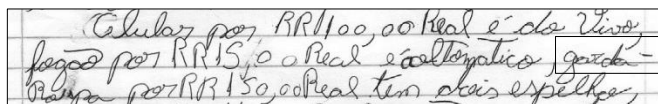 Celular por RR1100,00 Real é do Vivo,
fogão por RR15,00 Real é altomatico, garda-
Roupa por RR150,00 Real tem dois espelhos,